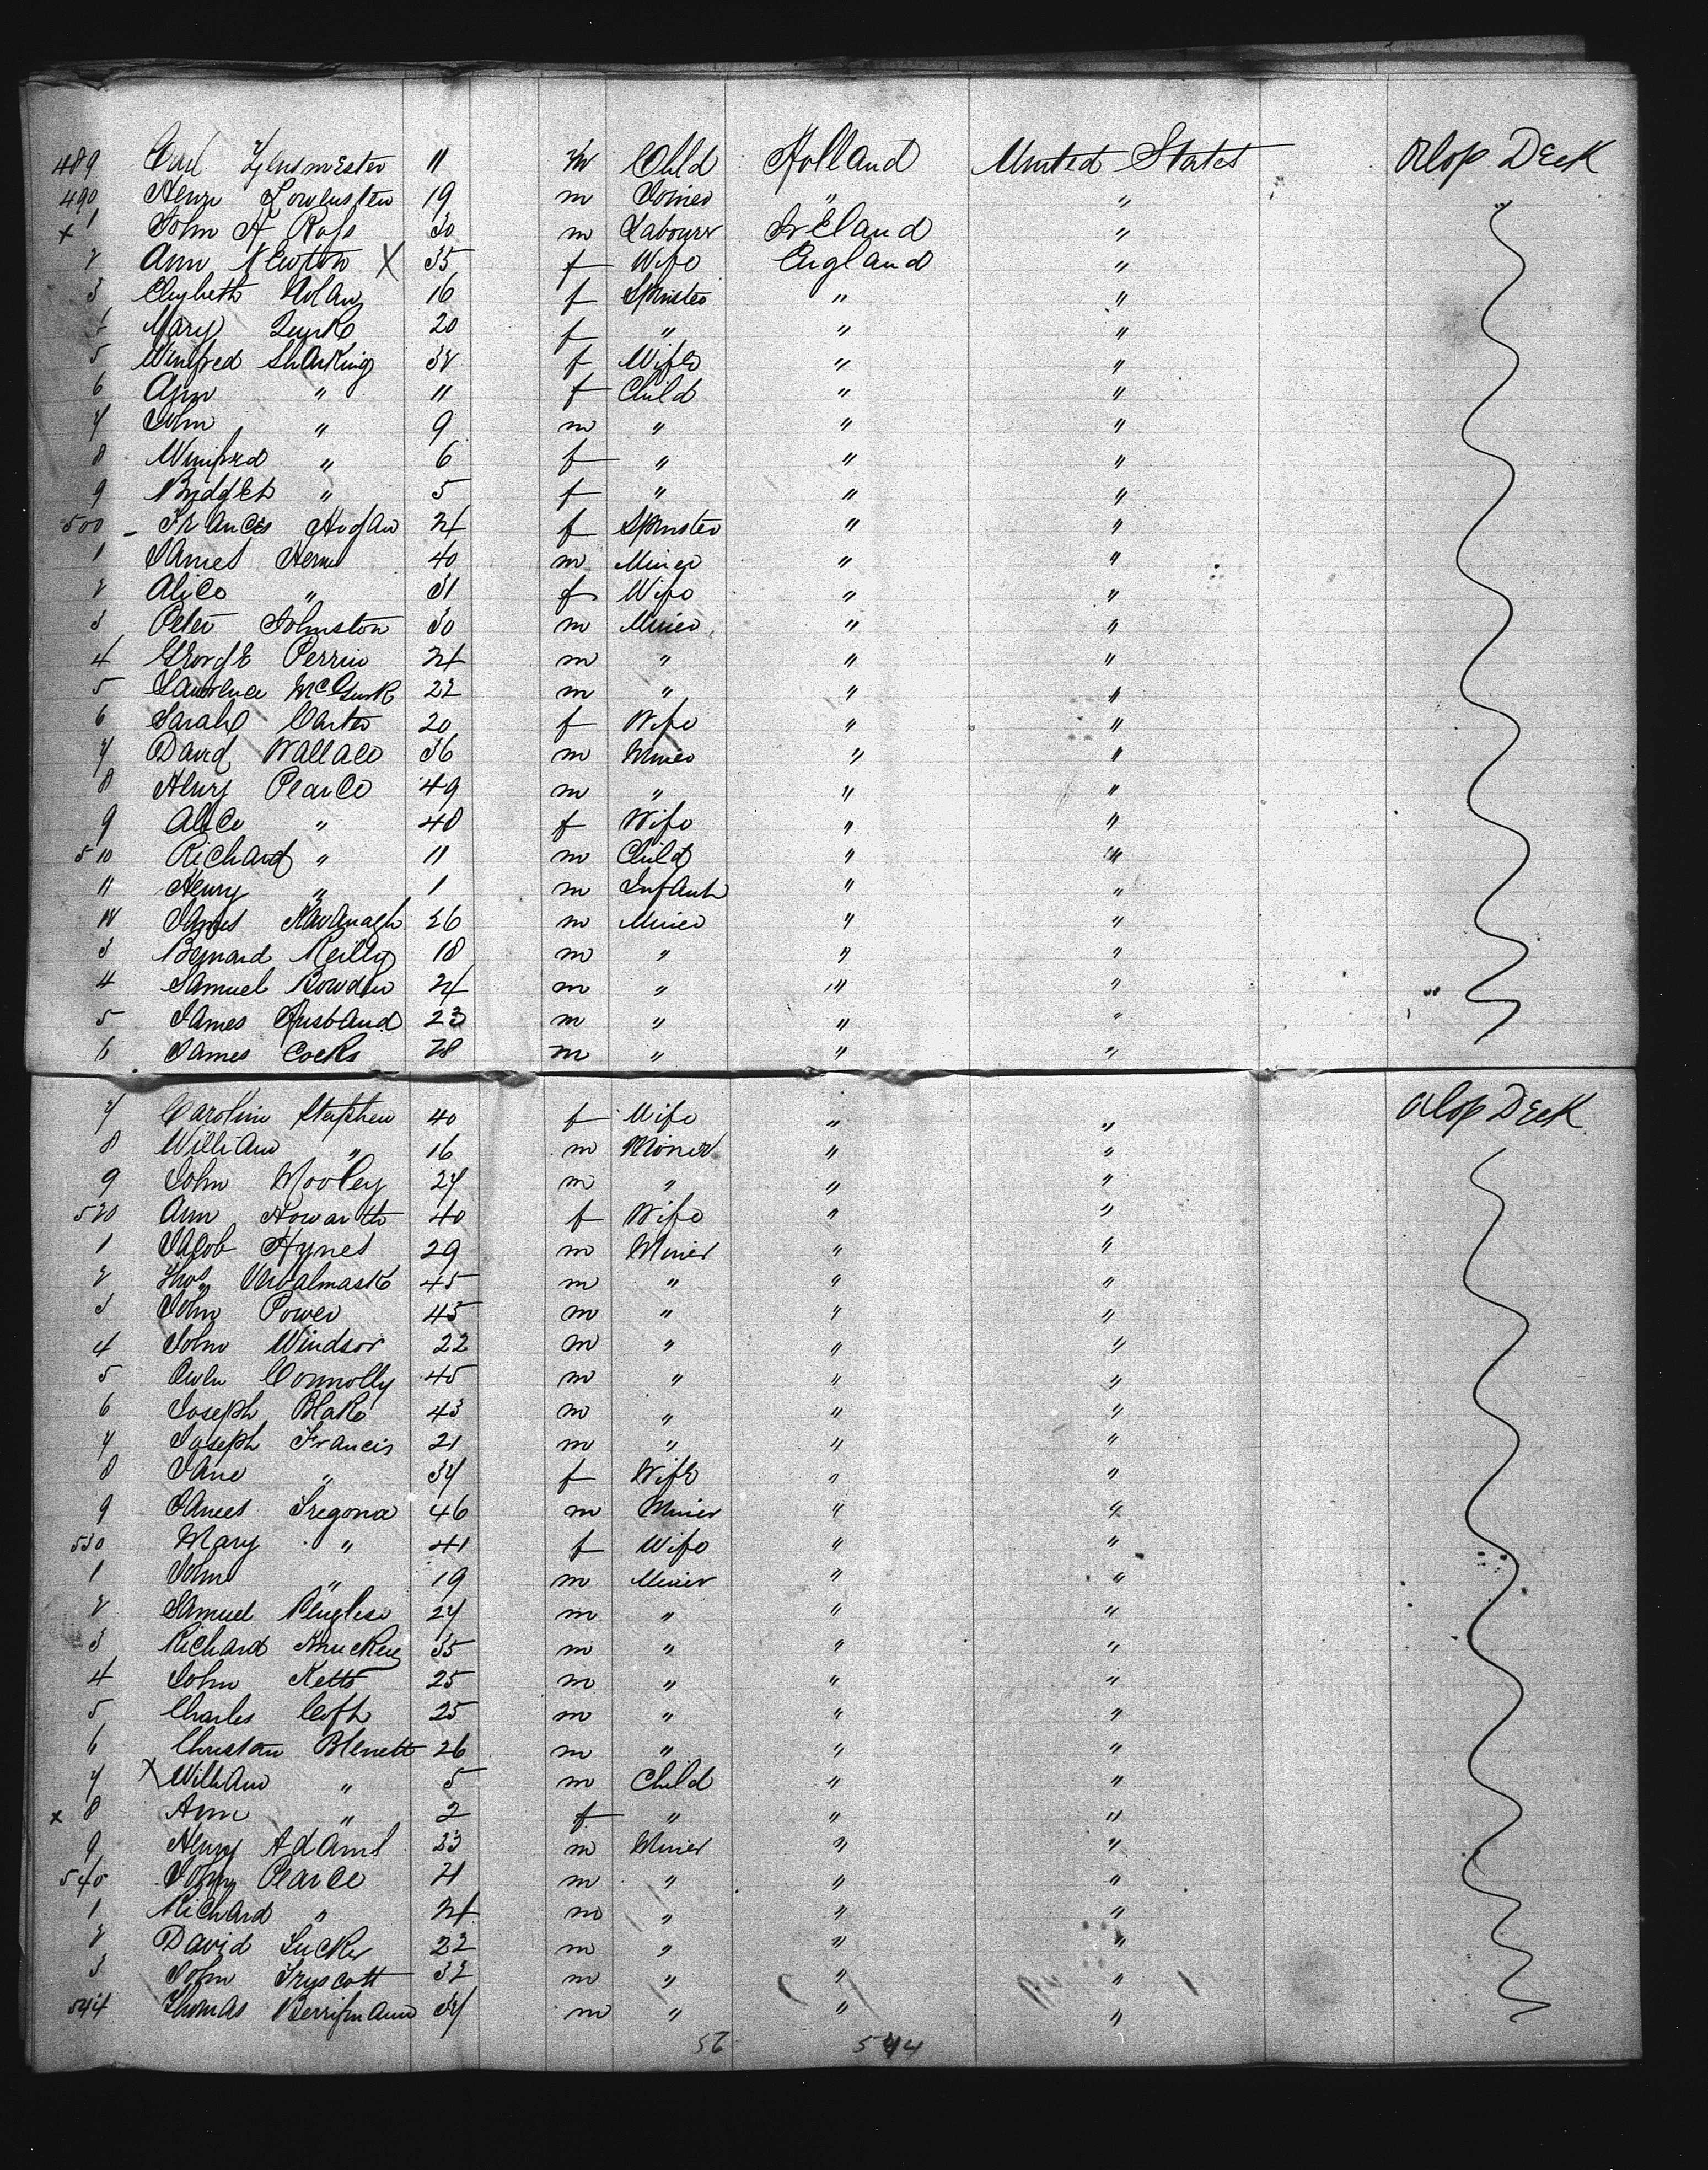 489 Carl 11 m Child Holland United States Orlop Deck
490 Henri Lowensten 19 m Joiner " "
x 1 John H Rofs 30 m Labourer Ireland "
2 Ann Newton X 35 f Wife England "
3 Elizabeth Nolan 16 f Spinster " "
4 Mary Quirk 20 f " " "
5 Winifred Sharking 32 f Wife " "
6 Ann " 11 f Child " "
7 John " 9 m " " "
8 Winifred " 6 f " " "
9 Bridget " 5 f " " "
500 - Frances Hogan 24 f Spinster " "
1 James 40 m Miner " "
2 Alice " 31 f Wife " "
3 Peter Johnston 30 m Miner " "
4 George Perrin 24 m " " "
5 Lawrence McGurk 22 m " " "
6 Sarah Carter 20 f Wife " "
7 David Wallace 36 m Miner " "
8 Henry Pearce 49 m " " "
9 Alice " 48 f Wife " "
510 Richard " 11 m Child " "
11 Henry " 1 m Infant " "
12 James Kavanagh 26 m Miner " "
3 Bernard Reilly 18 m " " "
4 Samuel Bowden 24 m " " "
5 James Husband 23 m " " "
6 James Cocks 28 m " " "
7 Caroline Stephen 40 f Wife " " Orlop Deck
8 William " 16 m Miner " "
9 John Wooley 27 m " " "
520 Ann Howarth 40 f Wife " "
1 Jacob Hynes 29 m Miner " "
2 Thos 45 m " " "
3 John Power 45 m " " "
4 John Windsor 22 m " " "
5 Owen Connolly 45 m " " "
6 Joseph Blake 43 m " " "
7 Joseph Francis 21 m " " "
8 Jane " 37 f Wife " "
9 James Tregona 46 m Miner " "
530 Mary " 41 f Wife " "
1 John " 19 m Miner " "
2 Samuel 27 m " " "
3 Richard Knuckey 35 m " " "
4 John Ketto 25 m " " "
5 Charles 25 m " " "
6 Christan Blenett 26 m " " "
7 X William " 5 m Child " "
x 8 Ann " 2 f " " "
9 Henry Adams 23 m Miner " "
540 John Pearce 21 m " " "
1 Richard " 24 m " " "
2 David Tucker 22 m " " "
3 John Tryscott 32 m " " "
544 Thomas Berriman 37 m " " "
56 544